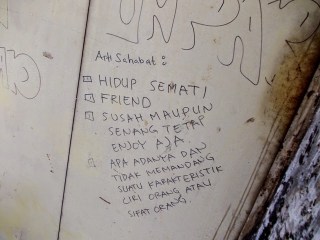 Arti Sahabat :
HIDUP SEMATI
FRIEND
SUSAH MAUPUN
SENANG TETAP
ENJOY AJA
APA ADANYA DAN
TIDAK MEMANDANG
SUATU KARAKTERISTIK
CIRI ORANG ATAU
SIFAT ORANG.